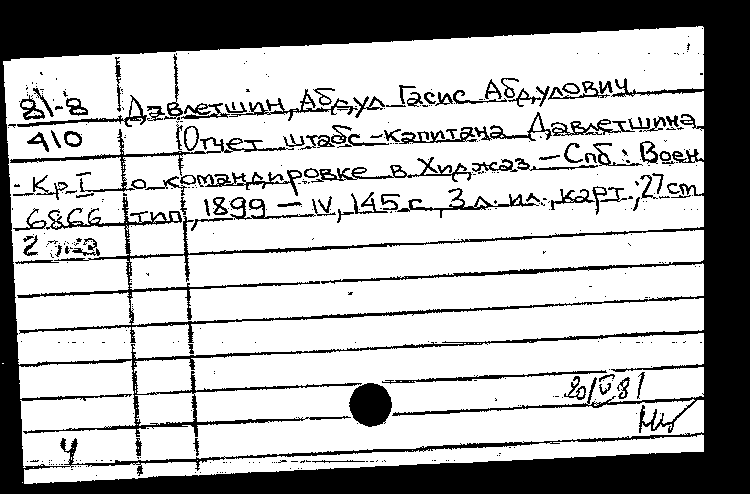 81-8 Давлетшин, Абдул Гасис Абдулович.
410 Отчет штабс-капитана Давлетшина
КрI о командировке в Хиджаз. - Спб: Воен
6866 тип, 1899 - IV, 145 с, 3 л. ил., карт.; 27 cm
2 экз
20/V 81
4